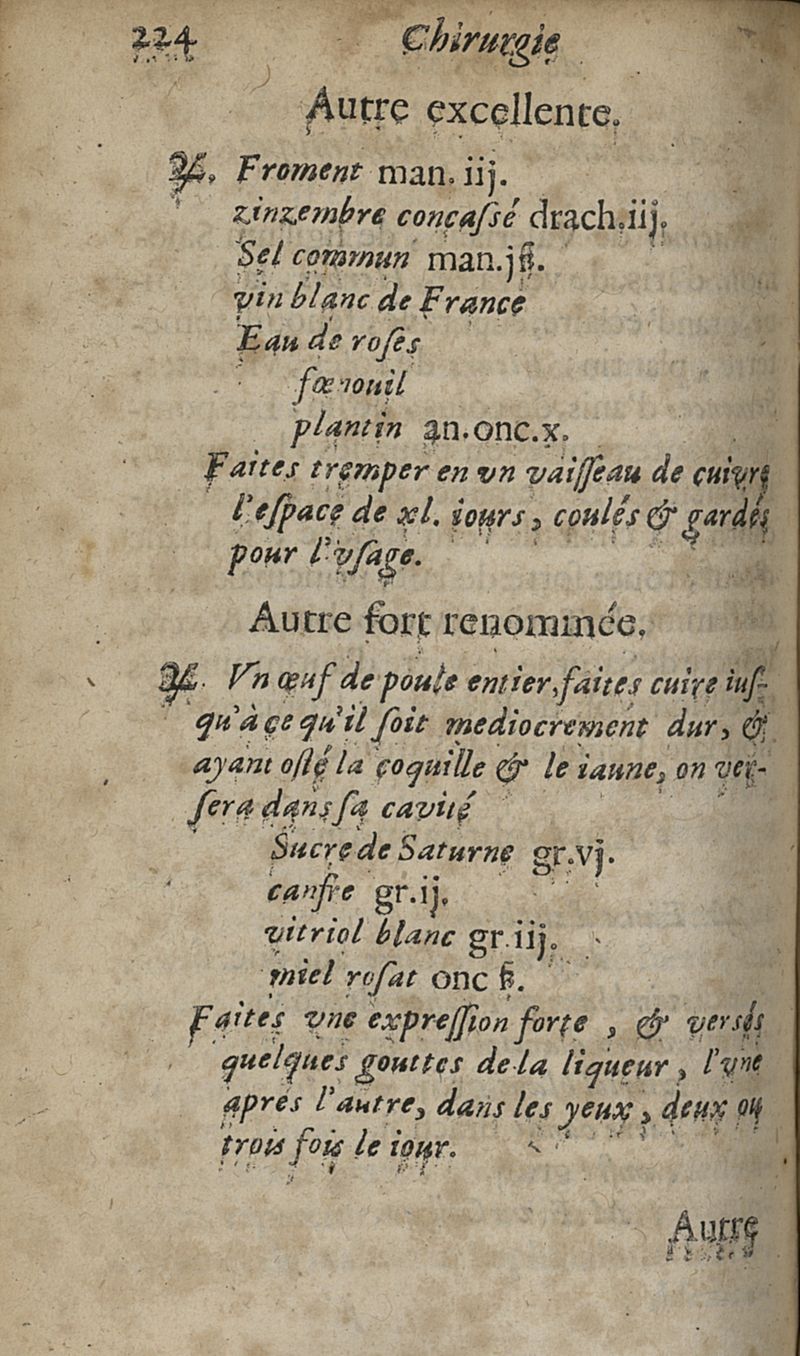 224 Chirurgie
Autre excellente.
℞. Froment man. iij.
zinzembre concaſsé drach.iij.
Sel commun man.jß.
vin blanc de France
Eau de roſes
fœnouil
plantin an.onc.x.
Faites tremper en vn vaiſſeau de cuivre
l'eſpace de xl. iours, coulés & gardés
pour l'vſage.
Autre fort renommée.
℞. Vn œuf de poule entier, faites cuire iuſ-
qu'à ce qu'il ſoit mediocrement dur, &
ayant oſté la coquille & le iaune, on ver-
ſera dans ſa cavité
Sucre de Saturne gr.vj.
canfre gr.ij.
vitriol blanc gr.iij.
miel roſat onc ß.
Faites vne expreſſion forte , & versés
quelques gouttes de la liqueur , l'vne
aprés l'autre, dans les yeux , deux ou
trois fois le iour.
Autre